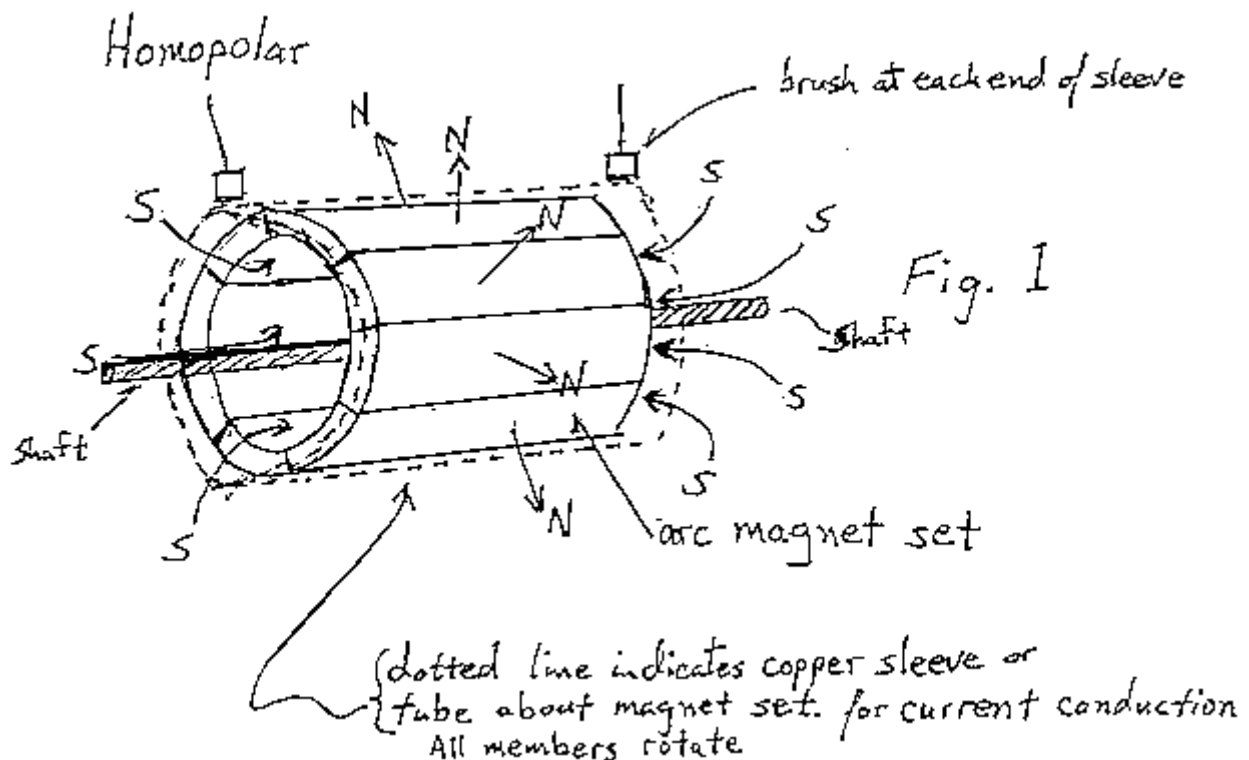 Homopolar
brush at each end of sleeve
N
N
S
S
N
S
Fig. 1
shaft
S
shaft
N
S
S
S
N
arc magnet set
dotted line indicates copper sleeve or
tube about magnet set. for current conduction
All members rotate